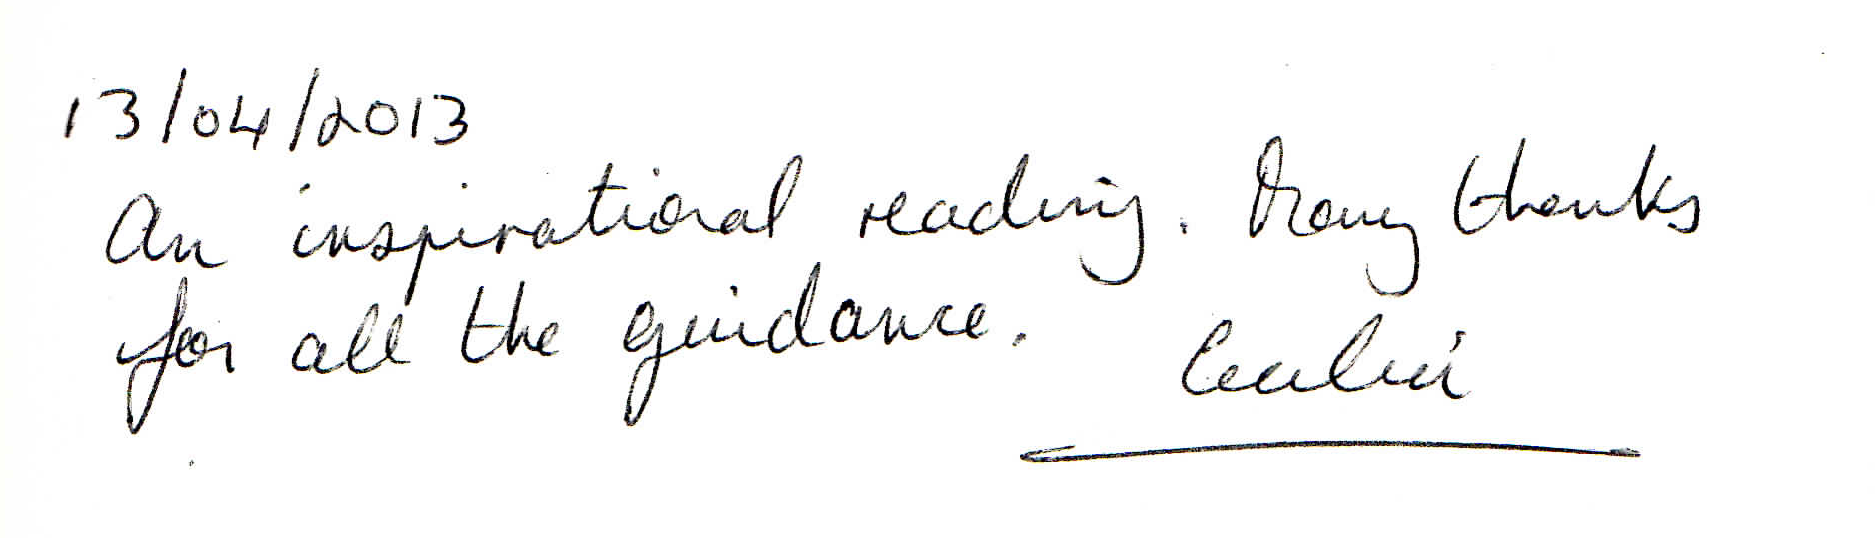 13/04/2013
An inspirational reading. Many thanks
for all the guidance.